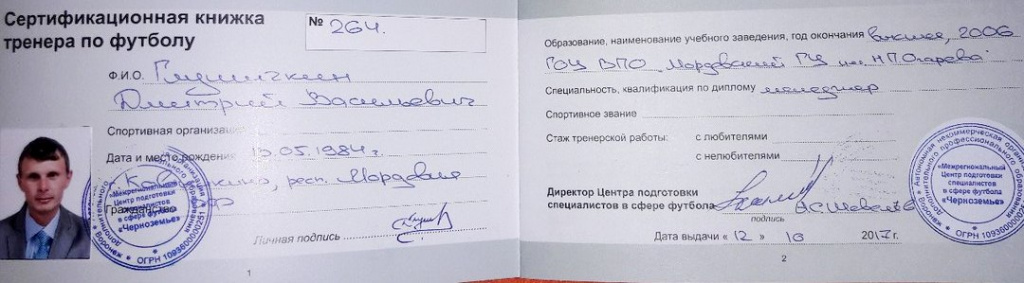 Сертификационная книжка
тренера по футболу
№ 264.
Ф.И.О.
Дмитрий Васильевич
Спортивная организация
Дата и место рождения 05.1984г.
респ. Мордовия
Гражданство
Личная подпись
1
Образование, наименование учебного заведения, год окончания высшее, 2006
ГОУ ВПО "Мордовский ГУ им. Н.П.Огарева"
Специальность, квалификация по диплому менеджер
Спортивное звание
Стаж тренерской работы: с любителями
с нелюбителями
Директор Центра подготовки
специалистов в сфере футбола
подпись
Дата выдачи « 12 » 10 2017г.
2
«Межрегиональный
Центр подготовки
специалистов
в сфере футбола
«Черноземье»
«Межрегиональный
Центр подготовки
специалистов
в сфере футбола
«Черноземье»